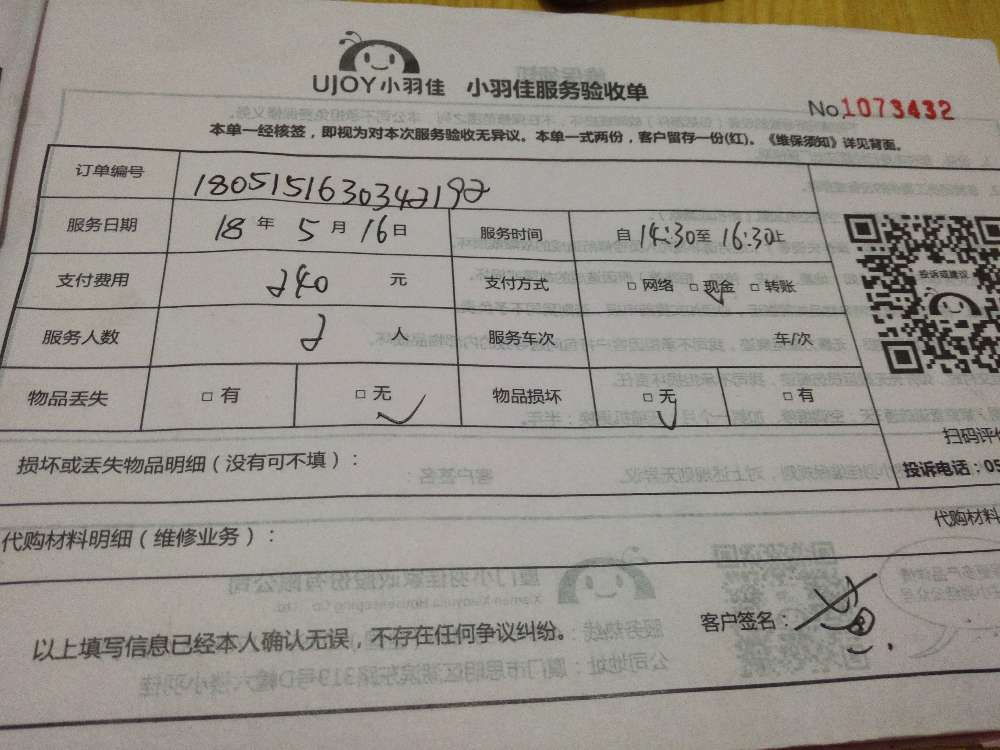 UJOY小羽佳 小羽佳服务验收单
No 1073432
本单一经核签，即视为对本次服务验收无异议。本单一式两份，客户留存一份(红)。《维保须知》详见背面。
订单编号 1805151630342192
服务日期 18 年 5 月 16 日 服务时间 自 14:30 至 16:30 止
支付费用 240 元 支付方式 □ 网络 □ 现金 □ 转账
服务人数 2 人 服务车次 车/次
物品丢失 □ 有 □ 无 物品损坏 □ 无 □ 有
投诉或建议
扫码评价
损坏或丢失物品明细（没有可不填）：
投诉电话：05
代购材料明细（维修业务）：
代购材料
以上填写信息已经本人确认无误，不存在任何争议纠纷。
客户签名：